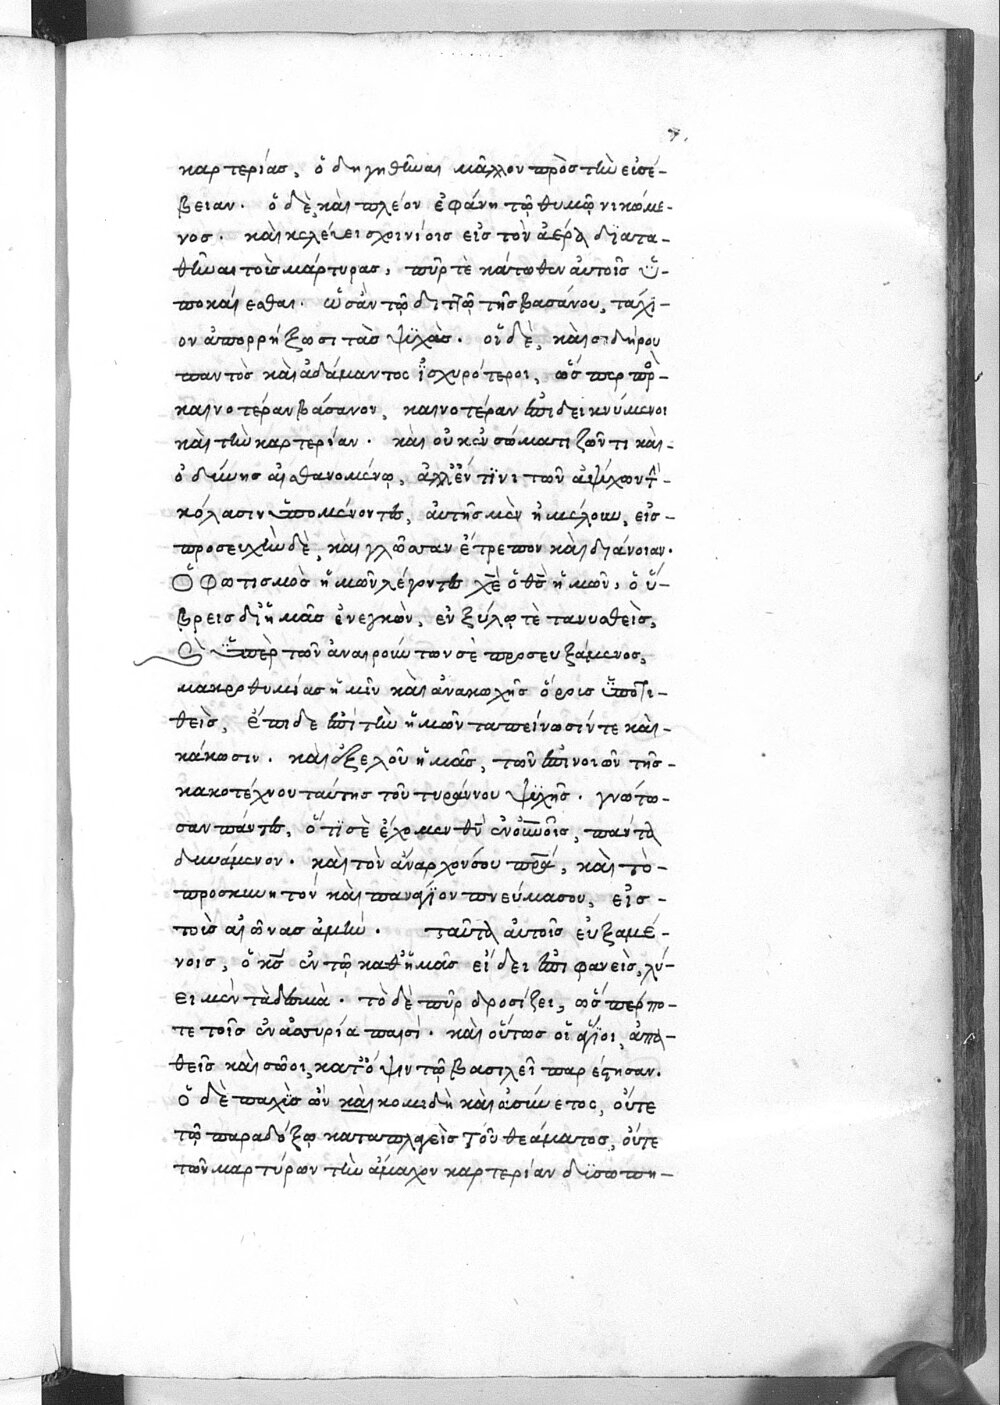 καρτερίας, ὁδηγηθῆναι μᾶλλον πρὸς τὴν εὐσέ-
βειαν. ὁ δὲ, καὶ πλέον ἐφάνη τῷ θυμῷ νικώμε-
νος. καὶ κελεύει σχοινίοις εἰς τὸν ἀέρα διατα-
θῆναι τοὺς μάρτυρας, πῦρ τὲ κάτωθεν αὐτοῖς ὑ-
ποκαίεσθαι. ὡς ἂν τῷ διττῷ τῆς βασάνου, τάχι-
ον ἀπορρήξωσι τὰς ψυχάς. οἱ δὲ, καὶ σιδήρου
παντὸς καὶ ἀδάμαντος ἰσχυρότεροι, ὥσπερ πρὸς
καινοτέραν βάσανον, καινοτέραν ἐπιδεικνύμενοι
καὶ τὴν καρτερίαν. καὶ οὐκ ἐν σώματι ζῶντι καὶ
ὀδύνης αἰσθανομένῳ, ἀλλ' ἔν τινι τῶν ἀψύχων τὴν
κόλασιν ὑπομένοντες, αὐτῆς μὲν ἠμέλουν, εἰς
προσευχὴν δὲ, καὶ γλῶτταν ἔτρεπον καὶ διάνοιαν.
Ὁ φωτισμὸς ἡμῶν λέγοντες χε ὁ θς ἡμῶν, ὁ ὕ-
βρεις δι' ἡμᾶς ἐνεγκὼν, ἐν ξύλῳ τὲ τανυσθεὶς,
καὶ ὑπὲρ τῶν ἀναιρούντων σὲ προσευξάμενος,
μακροθυμίας ἡμῖν καὶ ἀνακωχῆς ὅροις ὑποτι-
θεὶς, ἔπιδε ἐπὶ τὴν ἡμῶν ταπείνωσίν τε καὶ
κάκωσιν. καὶ ἐξελοῦ ἡμᾶς, τῶν ἐπινοιῶν τῆς
κακοτέχνου ταύτης τοῦ τυράννου ψυχῆς. γνώτω-
σαν πάντες, ὅτι σὲ ἔχομεν θν ἐν οὐνοῖς, πάντα
δυνάμενον. καὶ τὸν ἄναρχόν σου πρα, καὶ τὸ
προσκυνητόν καὶ πανάγιον πνεύμα σου, εἰς
τοὺς αἰῶνας ἀμήν. ταῦτα αὐτοῖς εὐξαμέ-
νοις, ὁ κς ἐν τῷ καθ' ἡμᾶς εἴδει ἐπιφανεὶς, λύ-
ει μὲν τὰ δεσμὰ. τὸ δὲ πῦρ δροσίζει, ὥσπερ πο-
τε τοῖς ἐν ἀσσυρία παισί. καὶ οὕτως οἱ ἅγιοι, ἀπα-
θεῖς καὶ σῶοι, κατ' ὄψιν τῷ βασιλεῖ παρέστησαν.
ὁ δὲ παχὺς ὢν καὶ κομιδῆ καὶ ἀσύνετος, οὔτε
τῷ παραδόξῳ καταπλαγεὶς τοῦ θεάματος, οὔτε
τῶν μαρτύρων τὴν ἄμαχον καρτερίαν δυσωπη-